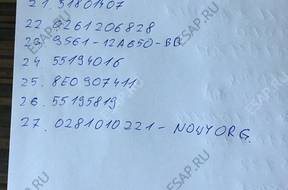 21. 51801407
22. 0261206828
23 9561-12A650-BB
24 55194016
25. 8E0907411
26. 55195819
27. 0281010221 - NOWY ORG.
ESAP.RF